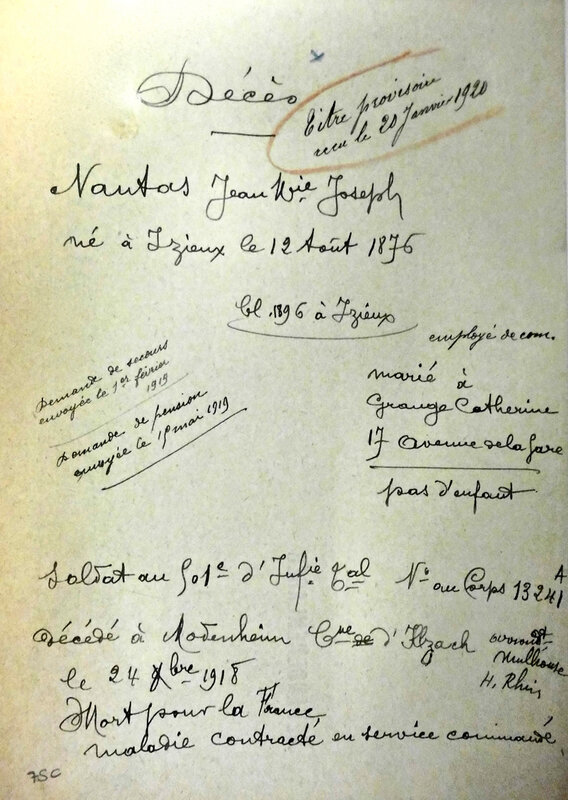 Décès
Titre provisoire
reçu le 20 Janvier 1920
Nantas Jean Mie Joseph
né à Izieux le 12 Août 1876
Cl. 1896 à Izieux
employé de com.
Demande de secours
envoyée le 1er février
1919
Demande de pension
envoyée le 19 mai 1919
marié à
Grange Catherine
17 avenue de la Gare
pas d'enfant
Soldat au 501e d'Infie Tal No au Corps 13241 A
Décédé à Modenheim Cne de d'Ilzach arrondt
Mulhouse
H. Rhin
le 24 Xbre 1918
Mort pour la France,
maladie contracté en service commandé